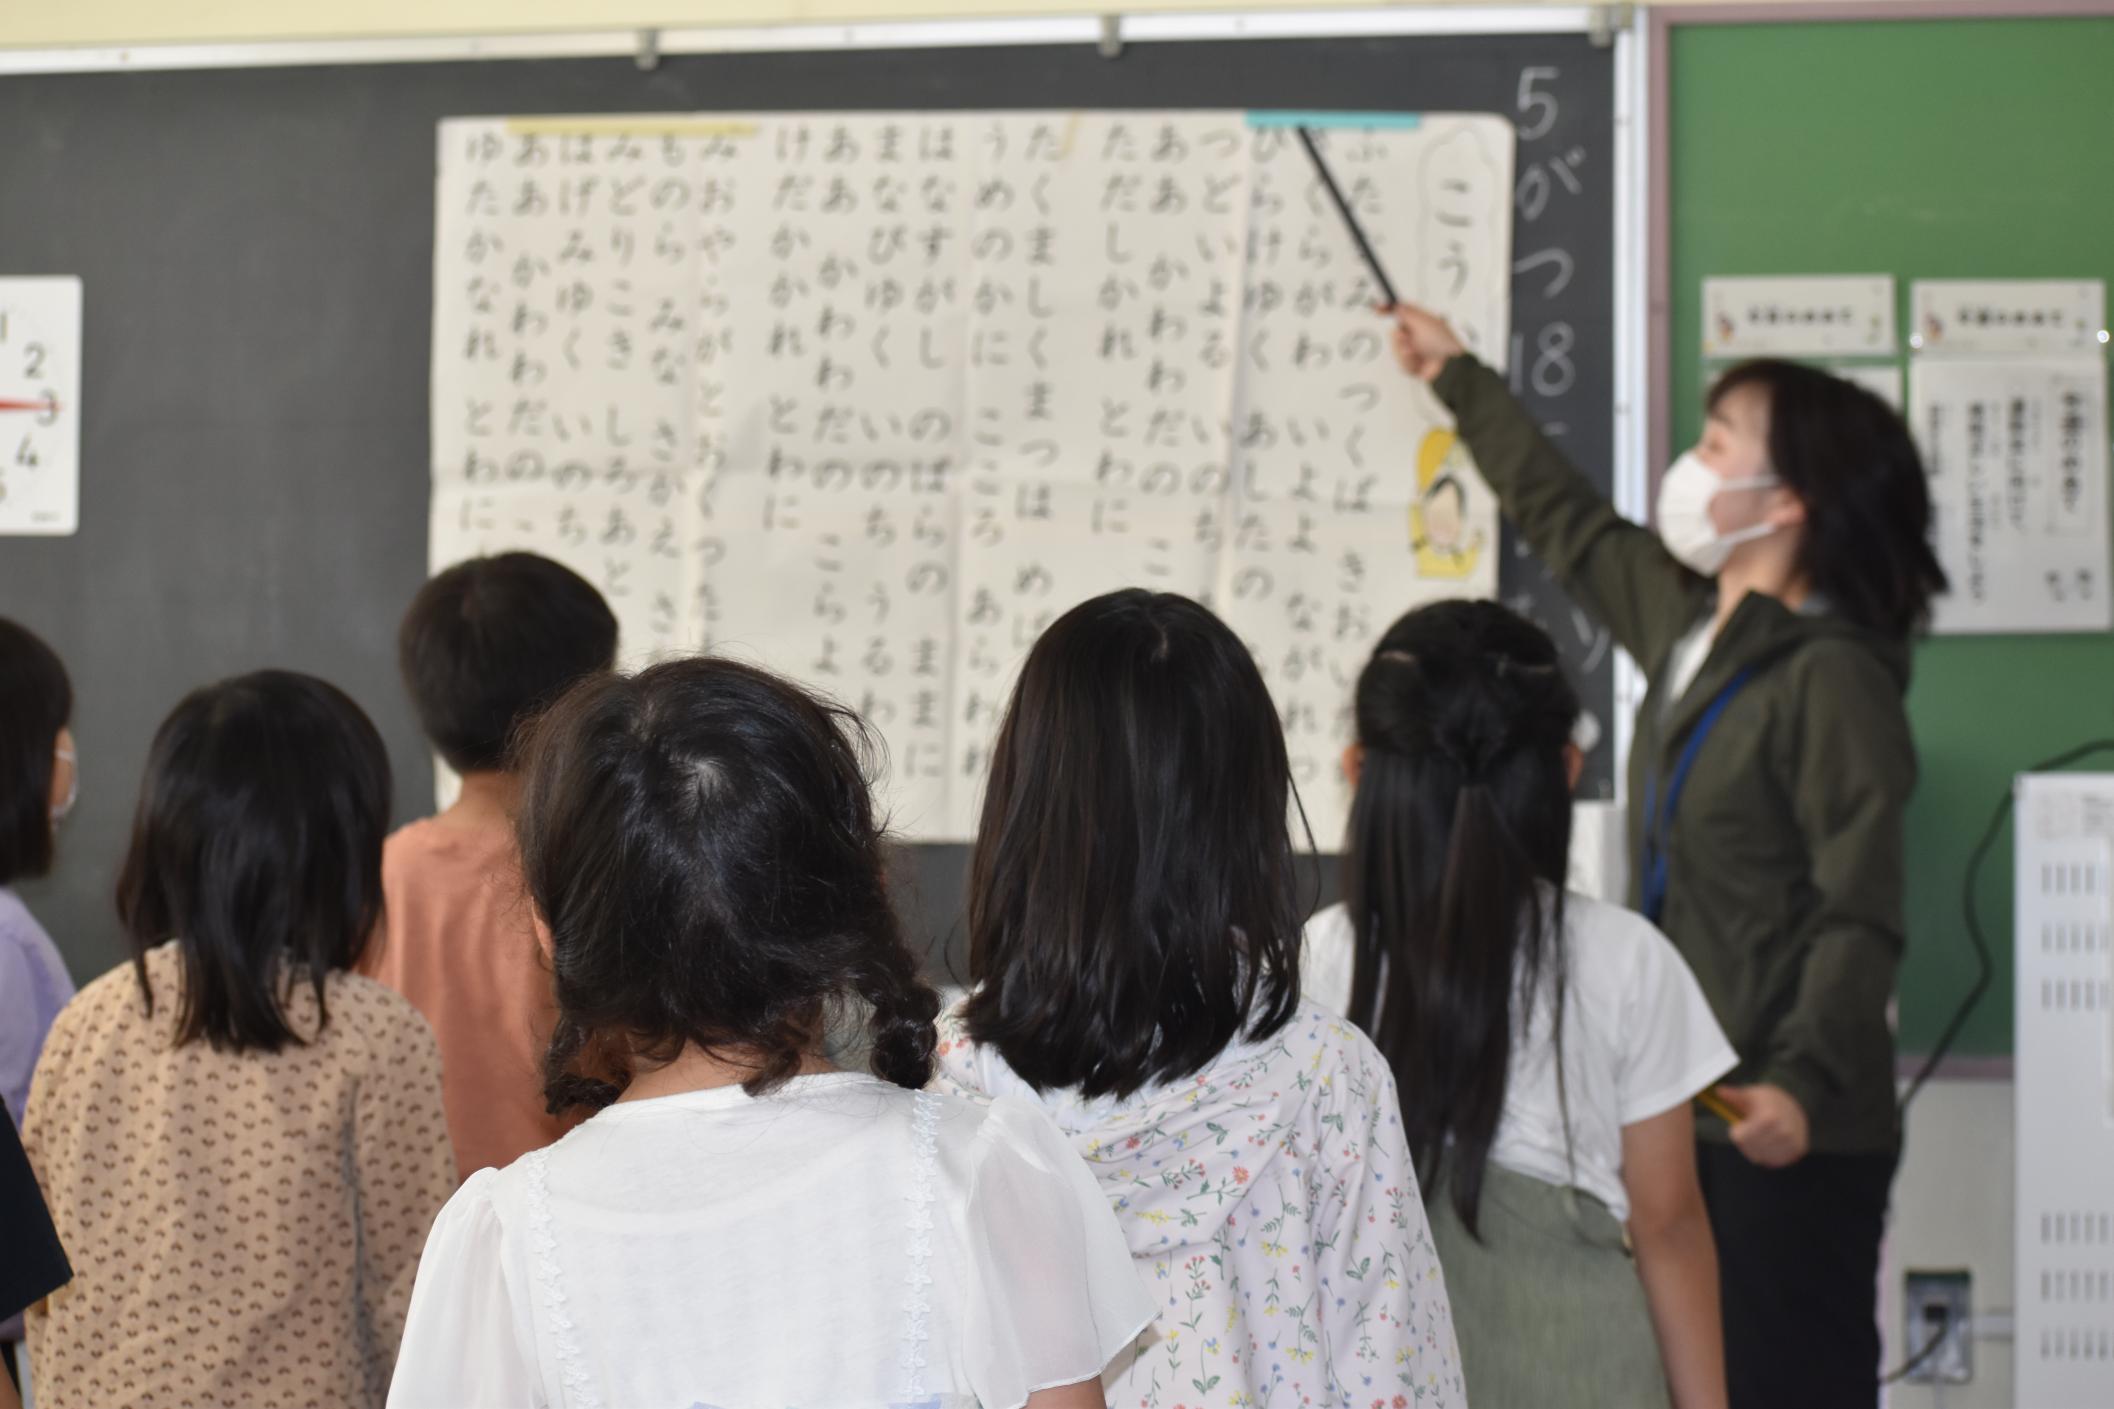 5がつ18
こう
ふたがみのつくば さお
くらがわ いよよ ながれ
ひらけゆく あしたの
つどいよる いのち
ああ かわわだの こ
ただしかれ とわに
たくましくまつは めば
うめのかに こころ あらわ
はなすがし のばらの ままに
まなびゆく いのち うるわ
ああ かわわだの こらよ
けだかかれ とわに
みおやらがとおくつた
ものら みな さかえ さ
みどりこき しろあと
はげみゆく いのち
ああ かわわだの こ
ゆたかなれ とわに
1
2
3
4